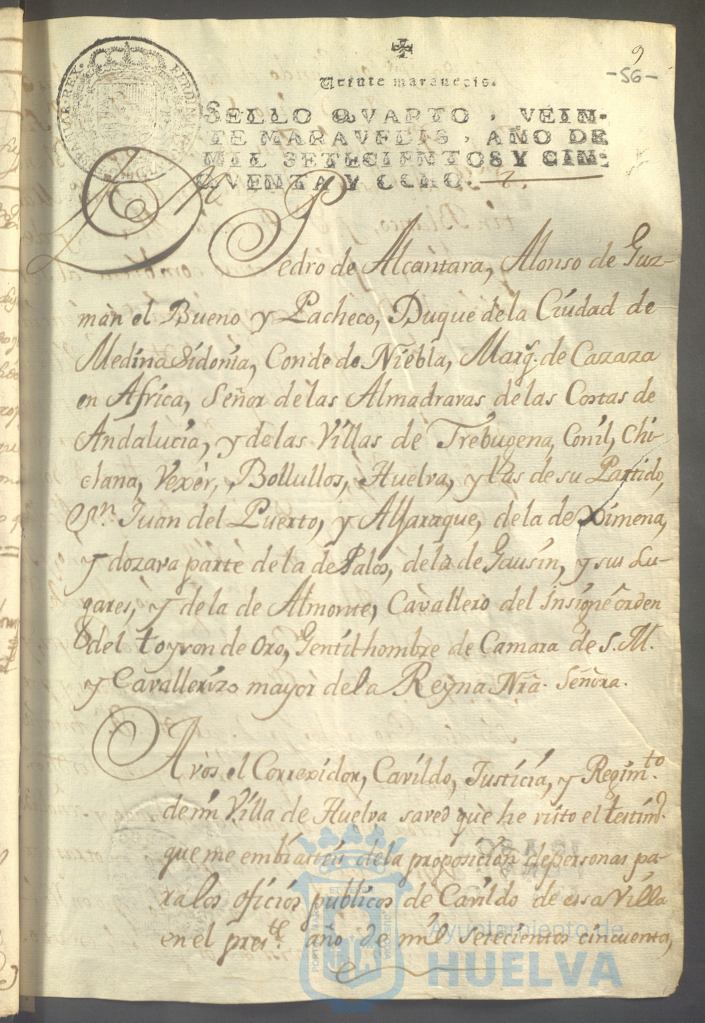 9
-56-
Veinte maravedis.
SELLO QVARTO, VEIN-
TE MARAVEDIS, AÑO DE
MIL SETECIENTOS Y CIN-
QVENTA Y OCHO.
Pedro de Alcantara, Alonso de Guz-
màn el Bueno y Pacheco, Duque de la Ciudad de
Medina Sidonia, Conde de Niebla, Marq.s de Cazaza
en Africa, Señor de las Almadravas de las Costas de
Andalucia, y de las Villas de Trebugena, Conil, Chi-
clana, Vexèr, Bollullos, Huelva, y las de su Partido,
Sn. Juan del Puerto, y Alfaraque, de la de Ximena,
y dozava parte de la de Palos, de la de Gausin, y sus Lu-
gares, y de la de Almonte, Cavallero del Insigne orden
del toyson de Oro, Gentilhombre de Camara de S. M.
y Cavallerizo mayor de la Reyna Nrà. Señora.
A vos el Correxidor, Cavildo, Justicia, y Regim.to
de mi Villa de Huelva saved que he visto el testim.o
que me embiasteis de la proposicion de personas pa-
ra los oficios publicos de Cavildo de esa Villa
en el pres.te año de mil setecientos cinquenta,
Ayuntamiento de
HUELVA